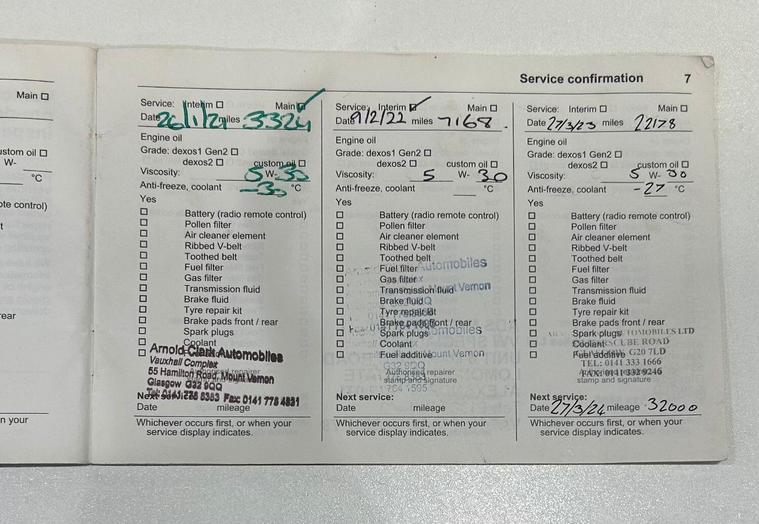 Main ☐
custom oil ☐
W-
°C
ote control)
t
ear
n your
Service confirmation 7
Service: Interim ☐ Main ☑
Date 26/1/21 miles 3324
Engine oil
Grade: dexos1 Gen2 ☐
dexos2 ☐ custom oil ☐
Viscosity: 5 W- 30
Anti-freeze, coolant -30 °C
Yes
☐ Battery (radio remote control)
☐ Pollen filter
☐ Air cleaner element
☐ Ribbed V-belt
☐ Toothed belt
☐ Fuel filter
☐ Gas filter
☐ Transmission fluid
☐ Brake fluid
☐ Tyre repair kit
☐ Brake pads front / rear
☐ Spark plugs
☐ Coolant
☐
Arnold Clark Automobiles
Vauxhall Complex
55 Hamilton Road, Mount Vernon
Glasgow G32 9QQ
Fax: 0141 778 4831
Next service:
Date mileage
Whichever occurs first, or when your
service display indicates.
Service: Interim ☑ Main ☐
Date 9/2/22 miles 7168.
Engine oil
Grade: dexos1 Gen2 ☐
dexos2 ☐ custom oil ☐
Viscosity: 5 W- 30
Anti-freeze, coolant °C
Yes
☐ Battery (radio remote control)
☐ Pollen filter
☐ Air cleaner element
☐ Ribbed V-belt
☐ Toothed belt
☐ Fuel filter
☐ Gas filter
☐ Transmission fluid
☐ Brake fluid
☐ Tyre repair kit
☐ Brake pads front / rear
☐ Spark plugs
☐ Coolant
☐ Fuel additive
Automobiles
Mount Vernon
Authorised repairer
stamp and signature
Next service:
Date mileage
Whichever occurs first, or when your
service display indicates.
Service: Interim ☐ Main ☐
Date 27/3/23 miles 22178
Engine oil
Grade: dexos1 Gen2 ☐
dexos2 ☐ custom oil ☐
Viscosity: 5 W- 30
Anti-freeze, coolant -27 °C
Yes
☐ Battery (radio remote control)
☐ Pollen filter
☐ Air cleaner element
☐ Ribbed V-belt
☐ Toothed belt
☐ Fuel filter
☐ Gas filter
☐ Transmission fluid
☐ Brake fluid
☐ Tyre repair kit
☐ Brake pads front / rear
☐ Spark plugs
☐ Coolant
☐ Fuel additive
ROAD
G20 7LD
TEL: 0141 333 1666
FAX: 0141 332 9246
stamp and signature
Next service:
Date 27/3/24 mileage 32000
Whichever occurs first, or when your
service display indicates.